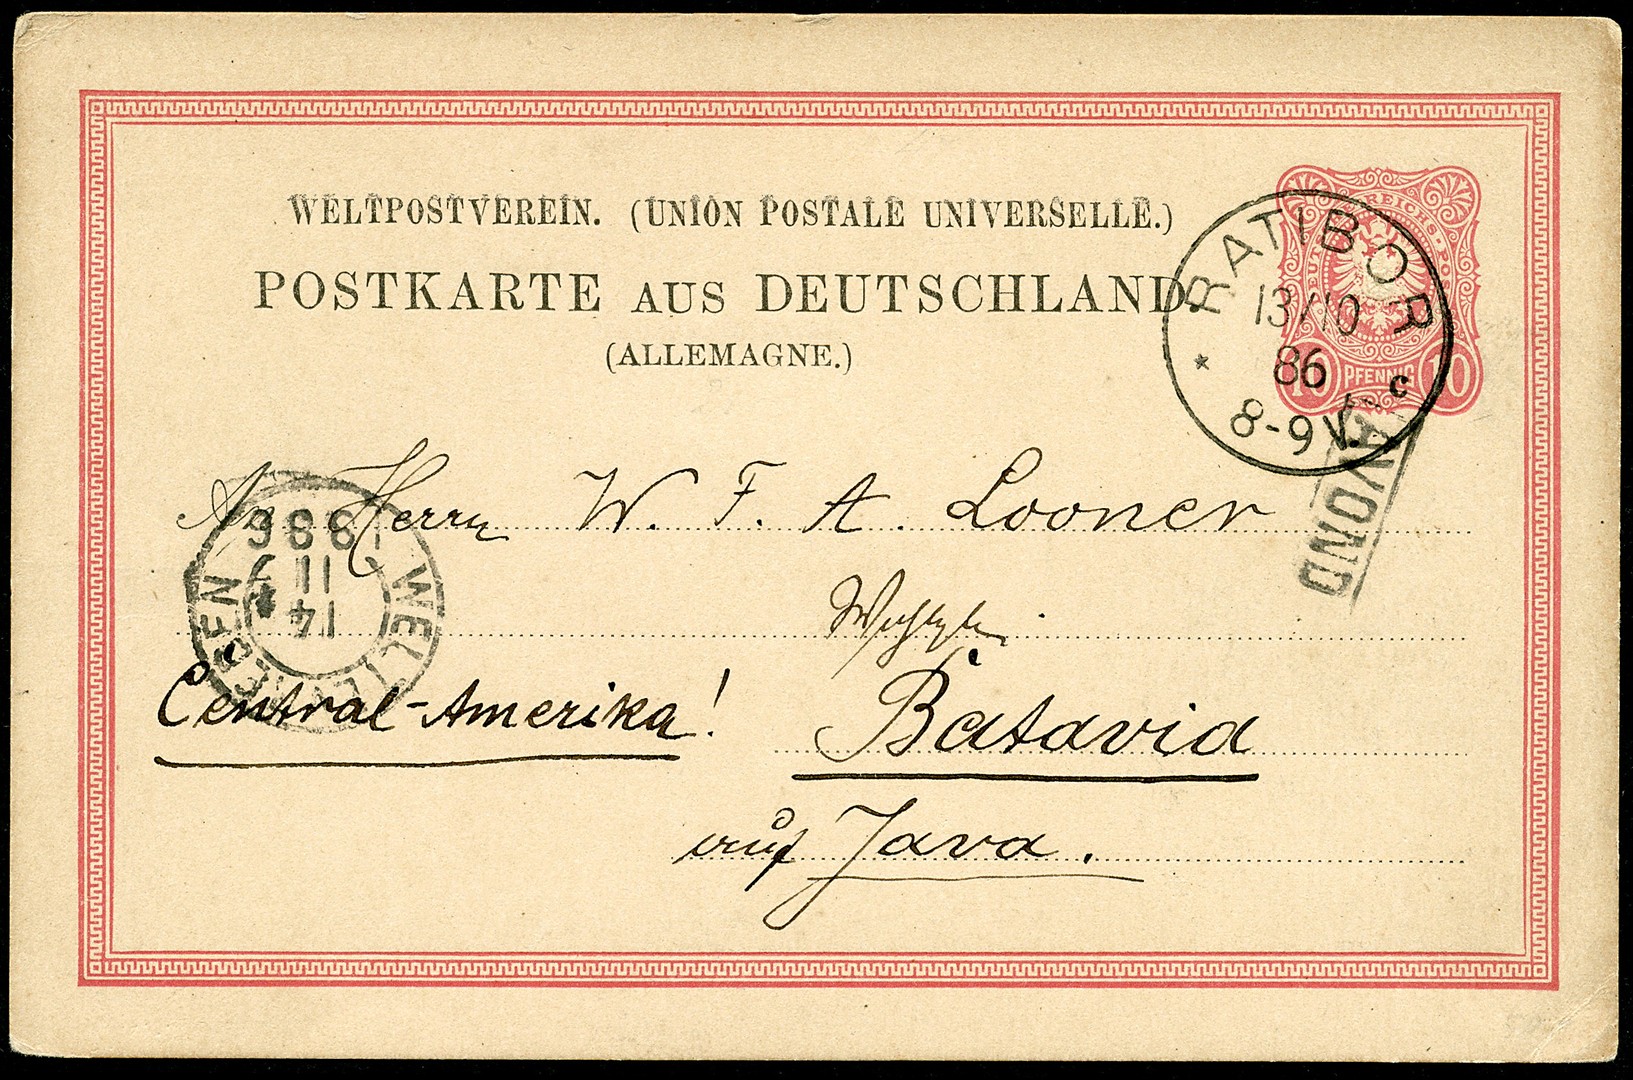 WELTPOSTVEREIN. (UNION POSTALE UNIVERSELLE.)
POSTKARTE AUS DEUTSCHLAND
(ALLEMAGNE.)
DEUTSCHE REICHS-POST
10 PFENNIG 10
RATIBOR
13/10
86
8-9V.
* c
AVOND
An Herrn W. F. A. Looner
Central-Amerika!
Batavia
auf Java.
WELTEVREDEN
14
11
1886